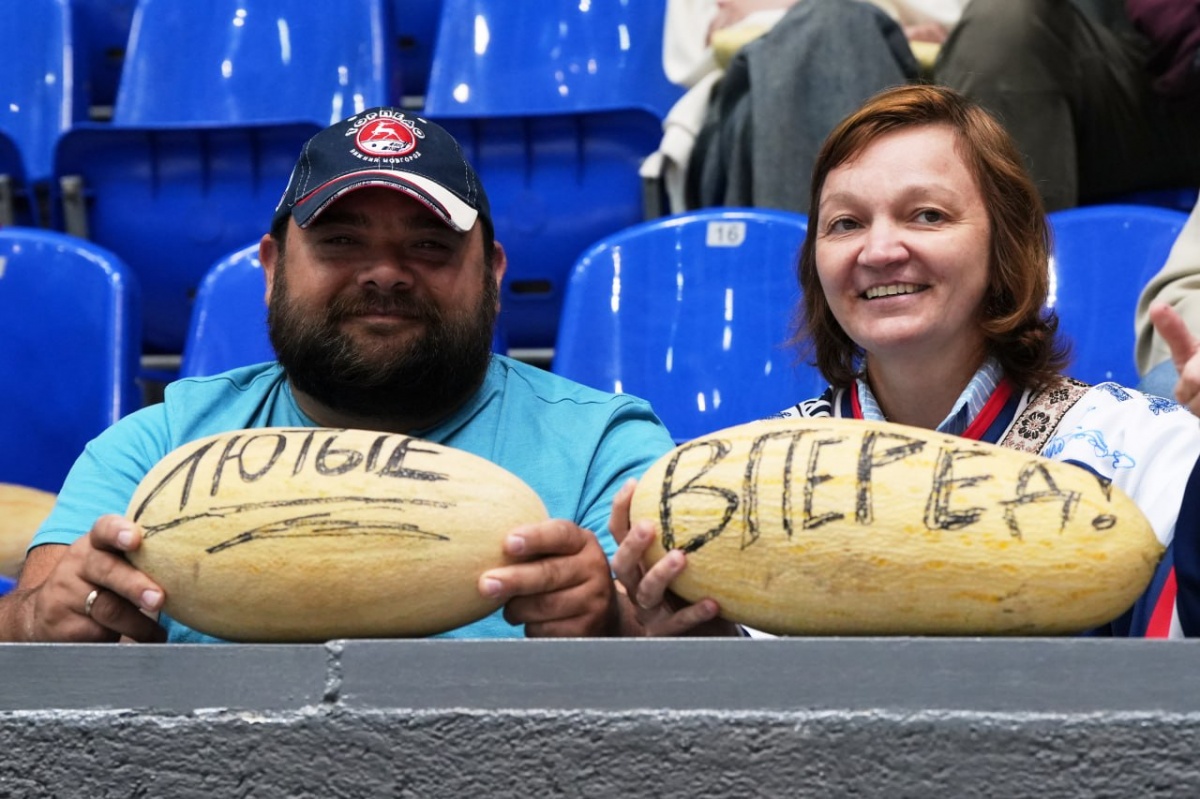 ТОРПЕДО
НИЖНИЙ НОВГОРОД
16
ЛЮТЫЕ
ВПЕРЕД!